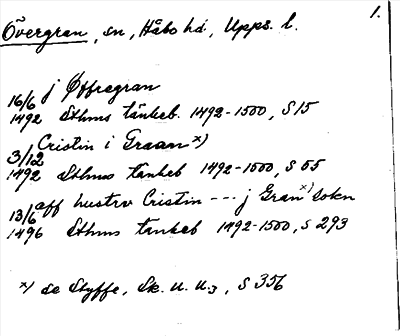 1.
Övergran, sn, Håbo hd, Upps. l.
j Øffregran
16/6 1492 Sthms tänkeb. 1492-1500, S 15
Cristin i Graan x)
3/12 1492 Sthms tänkeb 1492-1500, S 55
aff hustrv Cristin --- j Gran x) sokn
13/6 1496 Sthms tänkeb 1492-1500, S 293
x) se Styffe, Sk. u. u.3, S 356